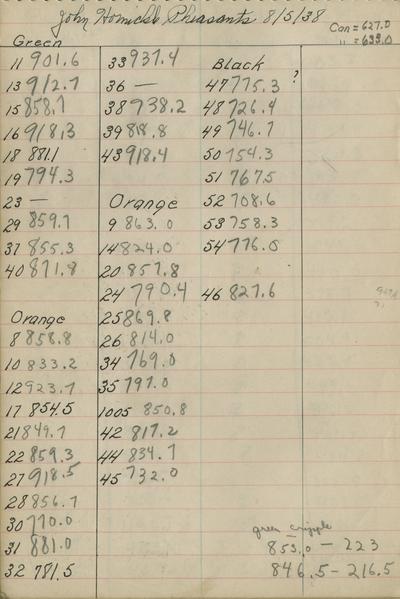 John Homicks Pheasants 8/5/38
Can = 627.0
" = 633.0
Green
11 901.6
13 912.7
15 858.7
16 918.3
18 881.1
19 794.3
23 —
29 859.7
37 855.3
40 871.8
Orange
8 858.8
10 833.2
12 923.7
17 854.5
21 849.7
22 859.3
27 918.5
28 856.7
30 770.0
31 881.0
32 781.5
33 937.4
36 —
38 938.2
39 818.8
43 918.4
Orange
9 863.0
14 824.0
20 857.8
24 790.4
25 869.8
26 814.0
34 769.0
35 797.0
1005 850.8
42 817.2
44 834.7
45 732.0
Black
47 775.3 ?
48 726.4
49 746.7
50 754.3
51 767.5
52 708.6
53 758.3
54 776.0
46 827.6
green cripple
853.0 — 223
846.5 - 216.5